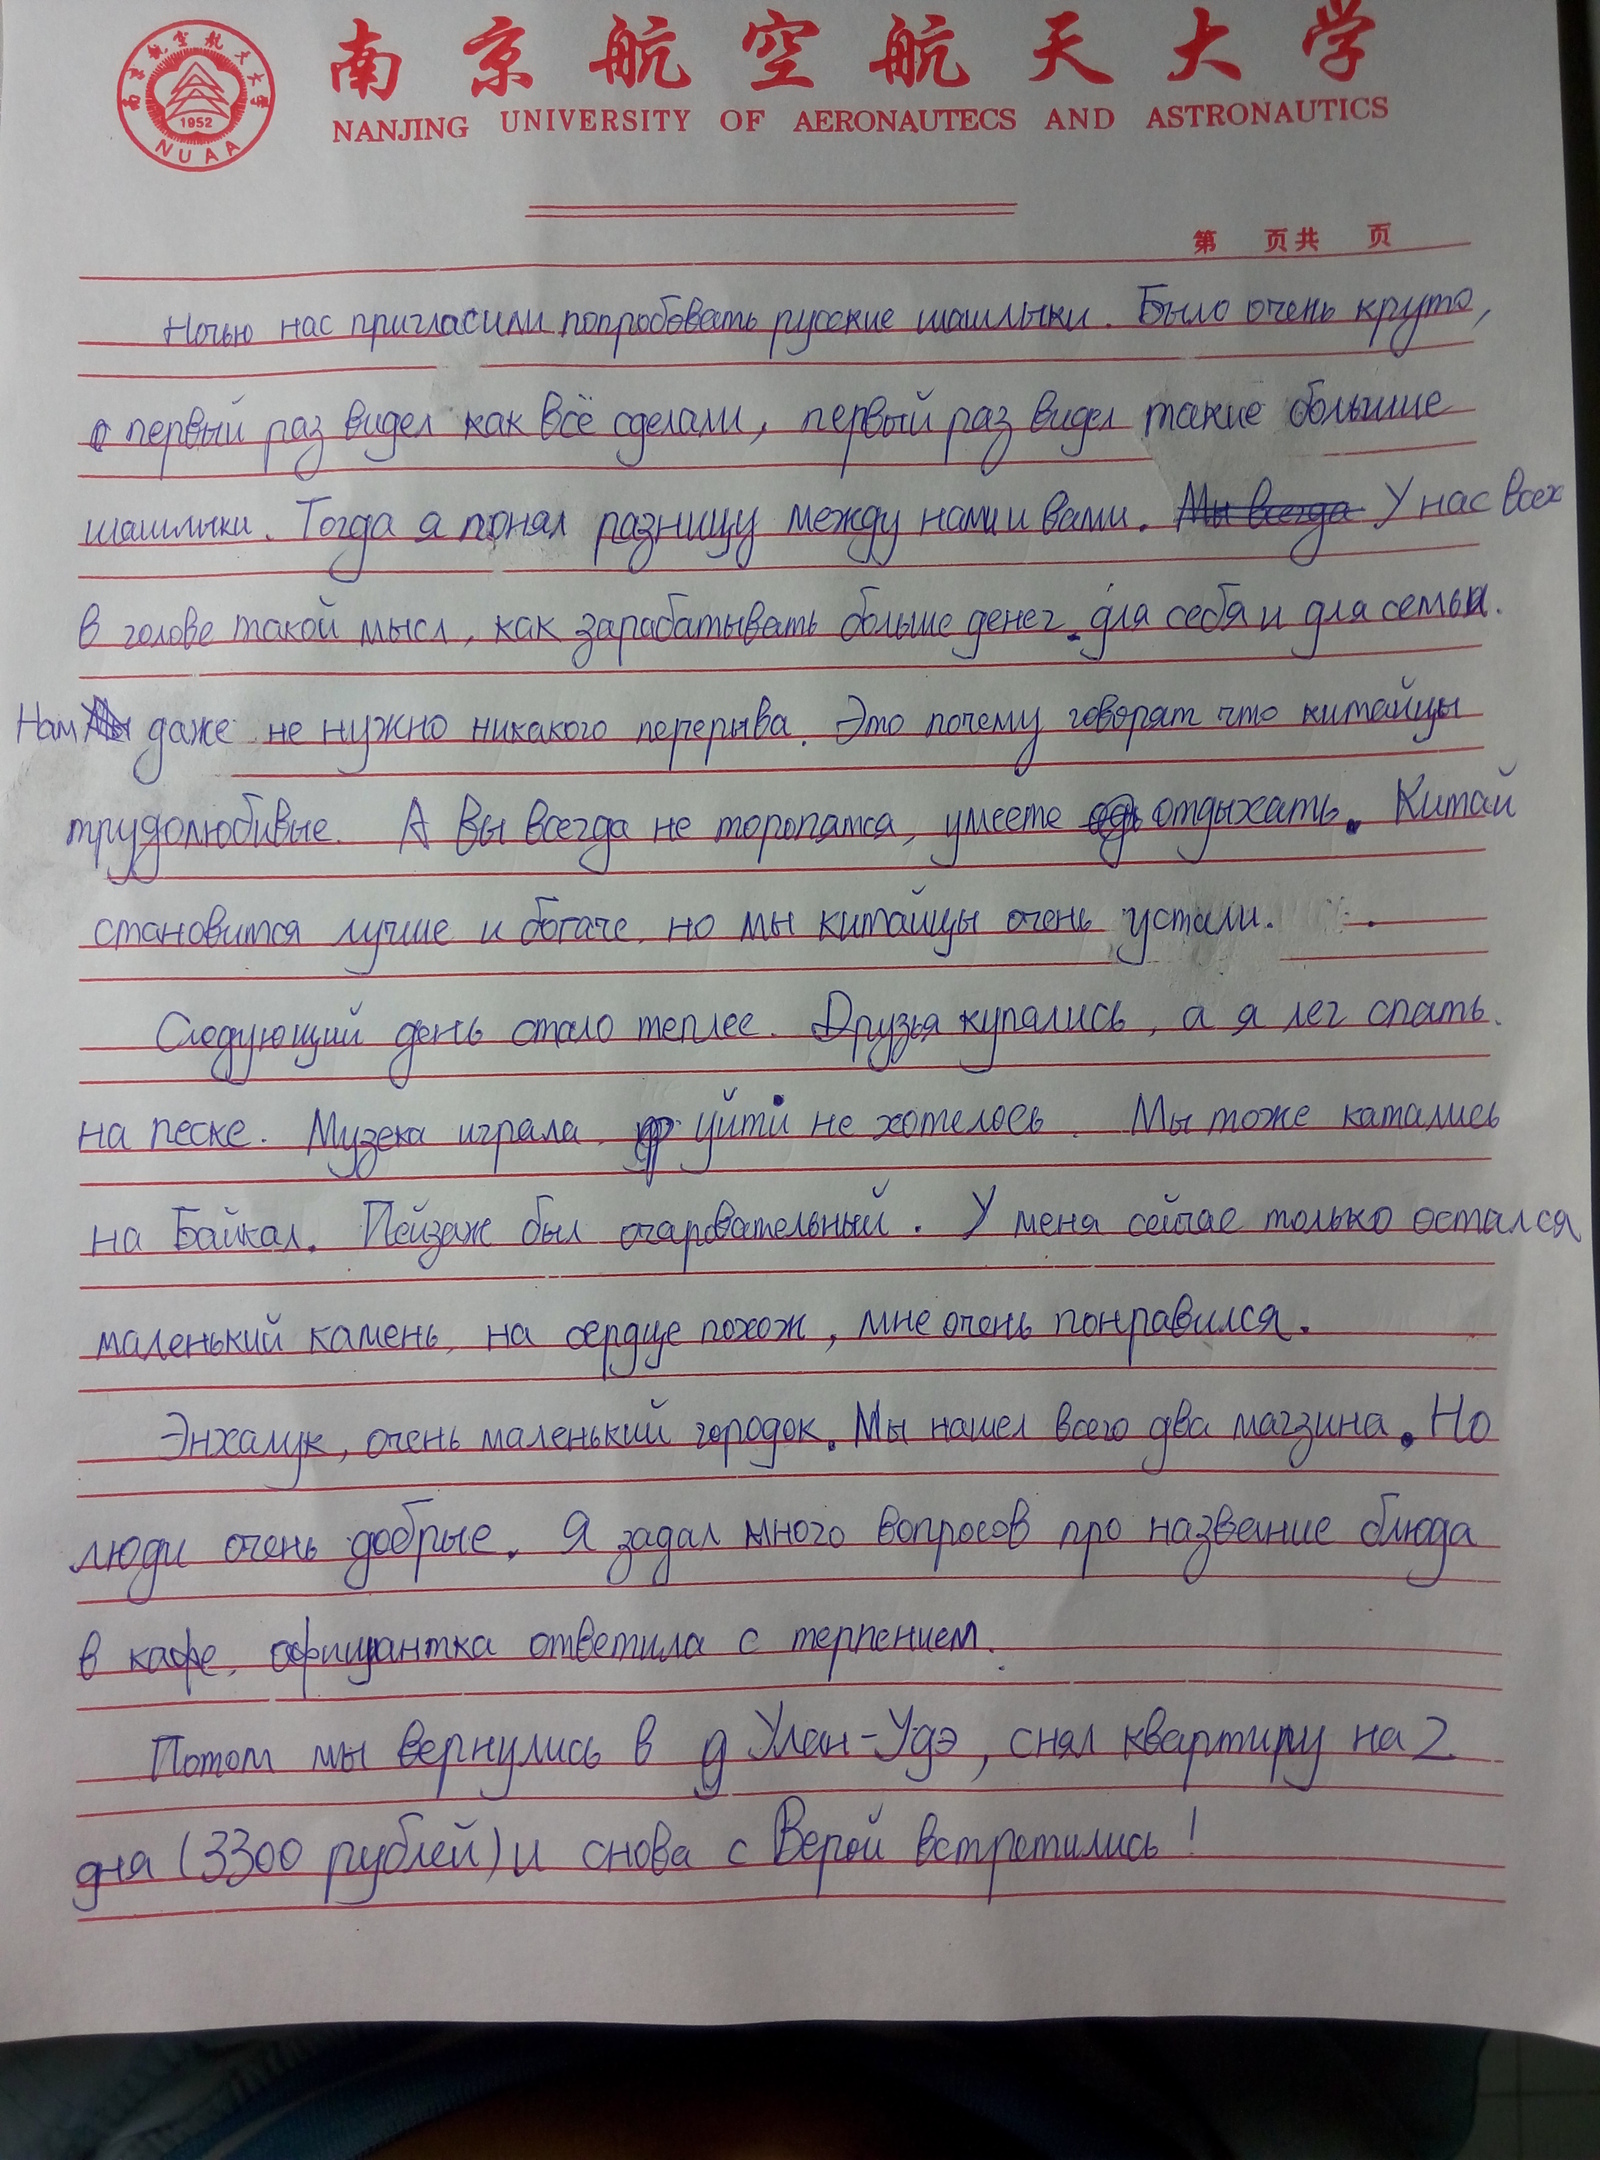 南京航空航天大学
NANJING UNIVERSITY OF AERONAUTECS AND ASTRONAUTICS
南京航空航天大学
1952
NUAA
第 页共 页
Ночью нас пригласили попробовать русские шашлыки. Было очень круто,
первый раз видел как всё сделали, первый раз видел такие большие
шашлыки. Тогда я понял разницу между нами и вами. Мы всегда У нас всех
в голове такой мысл, как зарабатывать больше денег для себя и для семьи.
Нам даже не нужно никакого перерыва. Это почему говорят что китайцы
трудолюбивые. А Вы всегда не торопятся, умеете отдыхать. Китай
становится лучше и богаче, но мы китайцы очень устали.
Следующий день стало теплее. Друзья купались, а я лёг спать
на песке. Музека играла, уйти не хотелось. Мы тоже катались
на Байкал. Пейзаж был очаровательный. У меня сейчас только остался
маленький камень, на сердце похож, мне очень понравился.
Энхалук, очень маленький городок. Мы нашел всего два магзина. Но
люди очень добрые. Я задал много вопросов про название блюда
в кафе, официантка ответила с терпением.
Потом мы вернулись в д Улан-Удэ, снял квартиру на 2
дня (3300 рублей) и снова с Верой встретились!